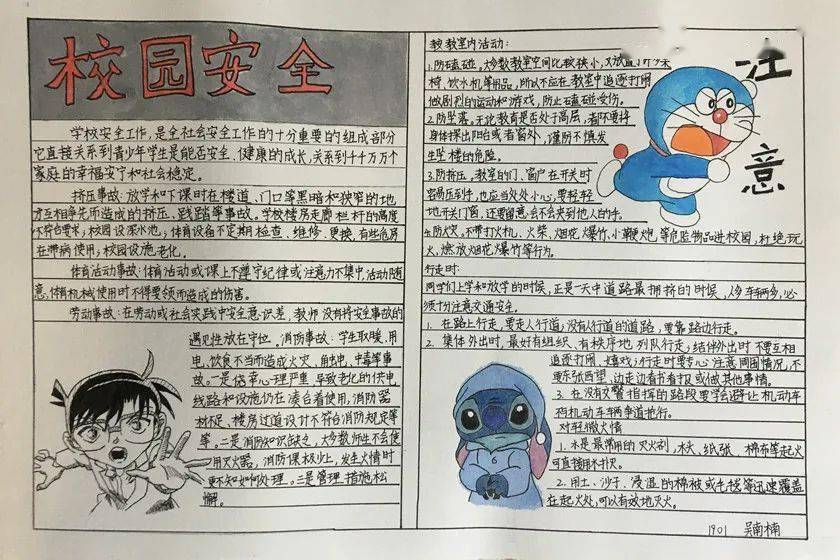 校园安全
学校安全工作，是全社会安全工作的十分重要的组成部分
它直接关系到青少年学生是能否安全、健康的成长，关系到千千万万个
家庭的幸福安宁和社会稳定。
挤压事故：放学和下课时在楼道、门口等黑暗和狭窄的地
方互相争先而造成的挤压、践踏等事故。学校楼房走廊栏杆的高度
不符合要求；校园设深水池；体育设备不定期检查、维修、更换，有些危房
在带病使用；校园设施老化。
体育活动事故：体育活动或课上不遵守纪律或注意力不集中，活动随
意，体育机械使用时不得要领而造成的伤害。
劳动事故：在劳动或社会实践中安全意识差，教师没有将安全事故的
遇见性放在守位。消防事故：学生取暖、用
电、饮食不当而造成火灾、触电、中毒等事
故。一是侥幸心理严重，导致老化的供电
线路和设施仍在凑合着使用，消防器
材不足，楼房过道设计不符合消防规定等
等。二是消防知识缺乏，大多数师生不会使
用灭火器，消防课极少上，发生火情时
更不知如何处理。三是管理措施松
懈。
教教室内活动：
1.防磕碰。大多数教室空间比较狭小，
椅、饮水机等用品，所以不应在教室中追逐打闹
做剧烈的运动和游戏，防止磕碰受伤。
2.防坠落。无论教育是否处于高层，都不要将
身体探出阳台或者窗外，谨防不慎发
生坠楼的危险。
3.防挤压。教室的门、窗户在开关时
容易压到手，也应当处处小心，要轻轻
地开关门窗，还要留意会不会夹到他人的手。
4.防火灾。不带打火机、火柴、烟花爆竹、小鞭炮等危险物品进校园，杜绝玩
火、燃放烟花爆竹等行为。
行走时：
同学们上学和放学的时候，正是一天中道路最拥挤的时候，人多车辆多，必
须十分注意交通安全。
1.在路上行走，要走人行道；没有人行道的道路，要靠路边行走。
2.集体外出时，最好有组织、有秩序地列队行走；结伴外出时不要互相
追逐打闹、嬉戏；行走时要专心注意周围情况，不
要东张西望、边走边看书看报或做其他事情。
3.在没有交警指挥的路段要学会避让机动车
不与机动车车辆争道抢行。
对轻微火情
1.水是最常用的灭火剂，木头、纸张、棉布等起火
可直接用水扑灭。
2.用土、沙子、浸湿的棉被或毛毯等迅速覆盖
在起火处，可以有效地灭火。
注意
1901 吴南楠